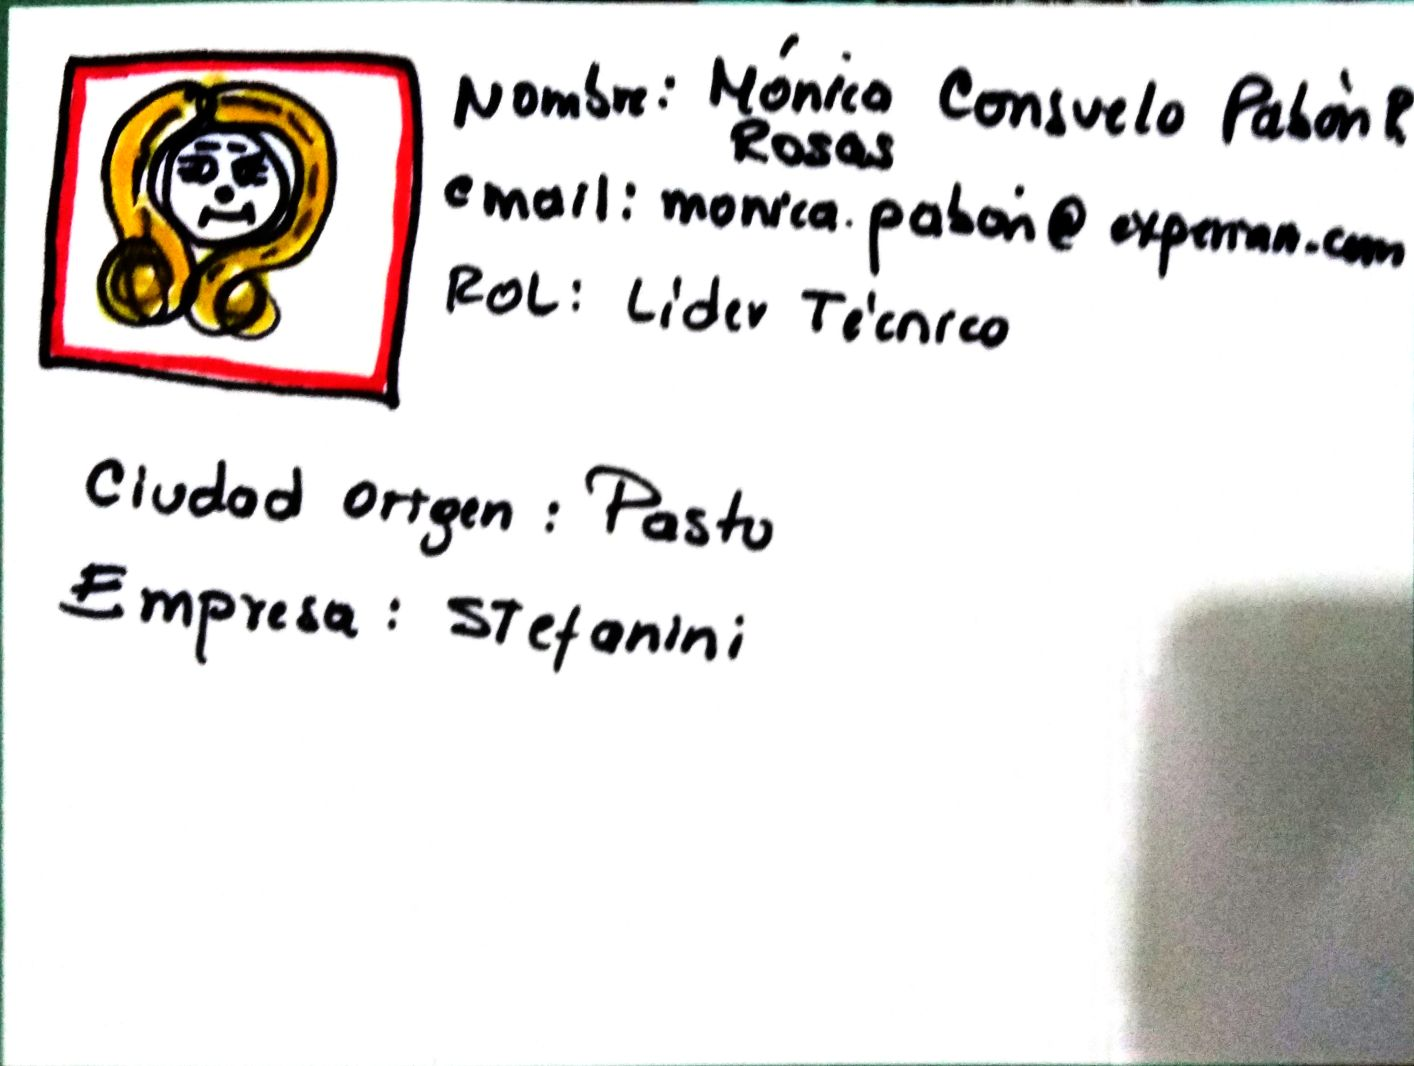 Nombre: Mónica Consuelo Pabón R
Rosas
email: monica.pabon@
ROL: Líder Técnico
Ciudad origen: Pasto
Empresa: Stefanini